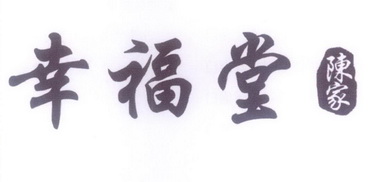 幸福堂 陳家